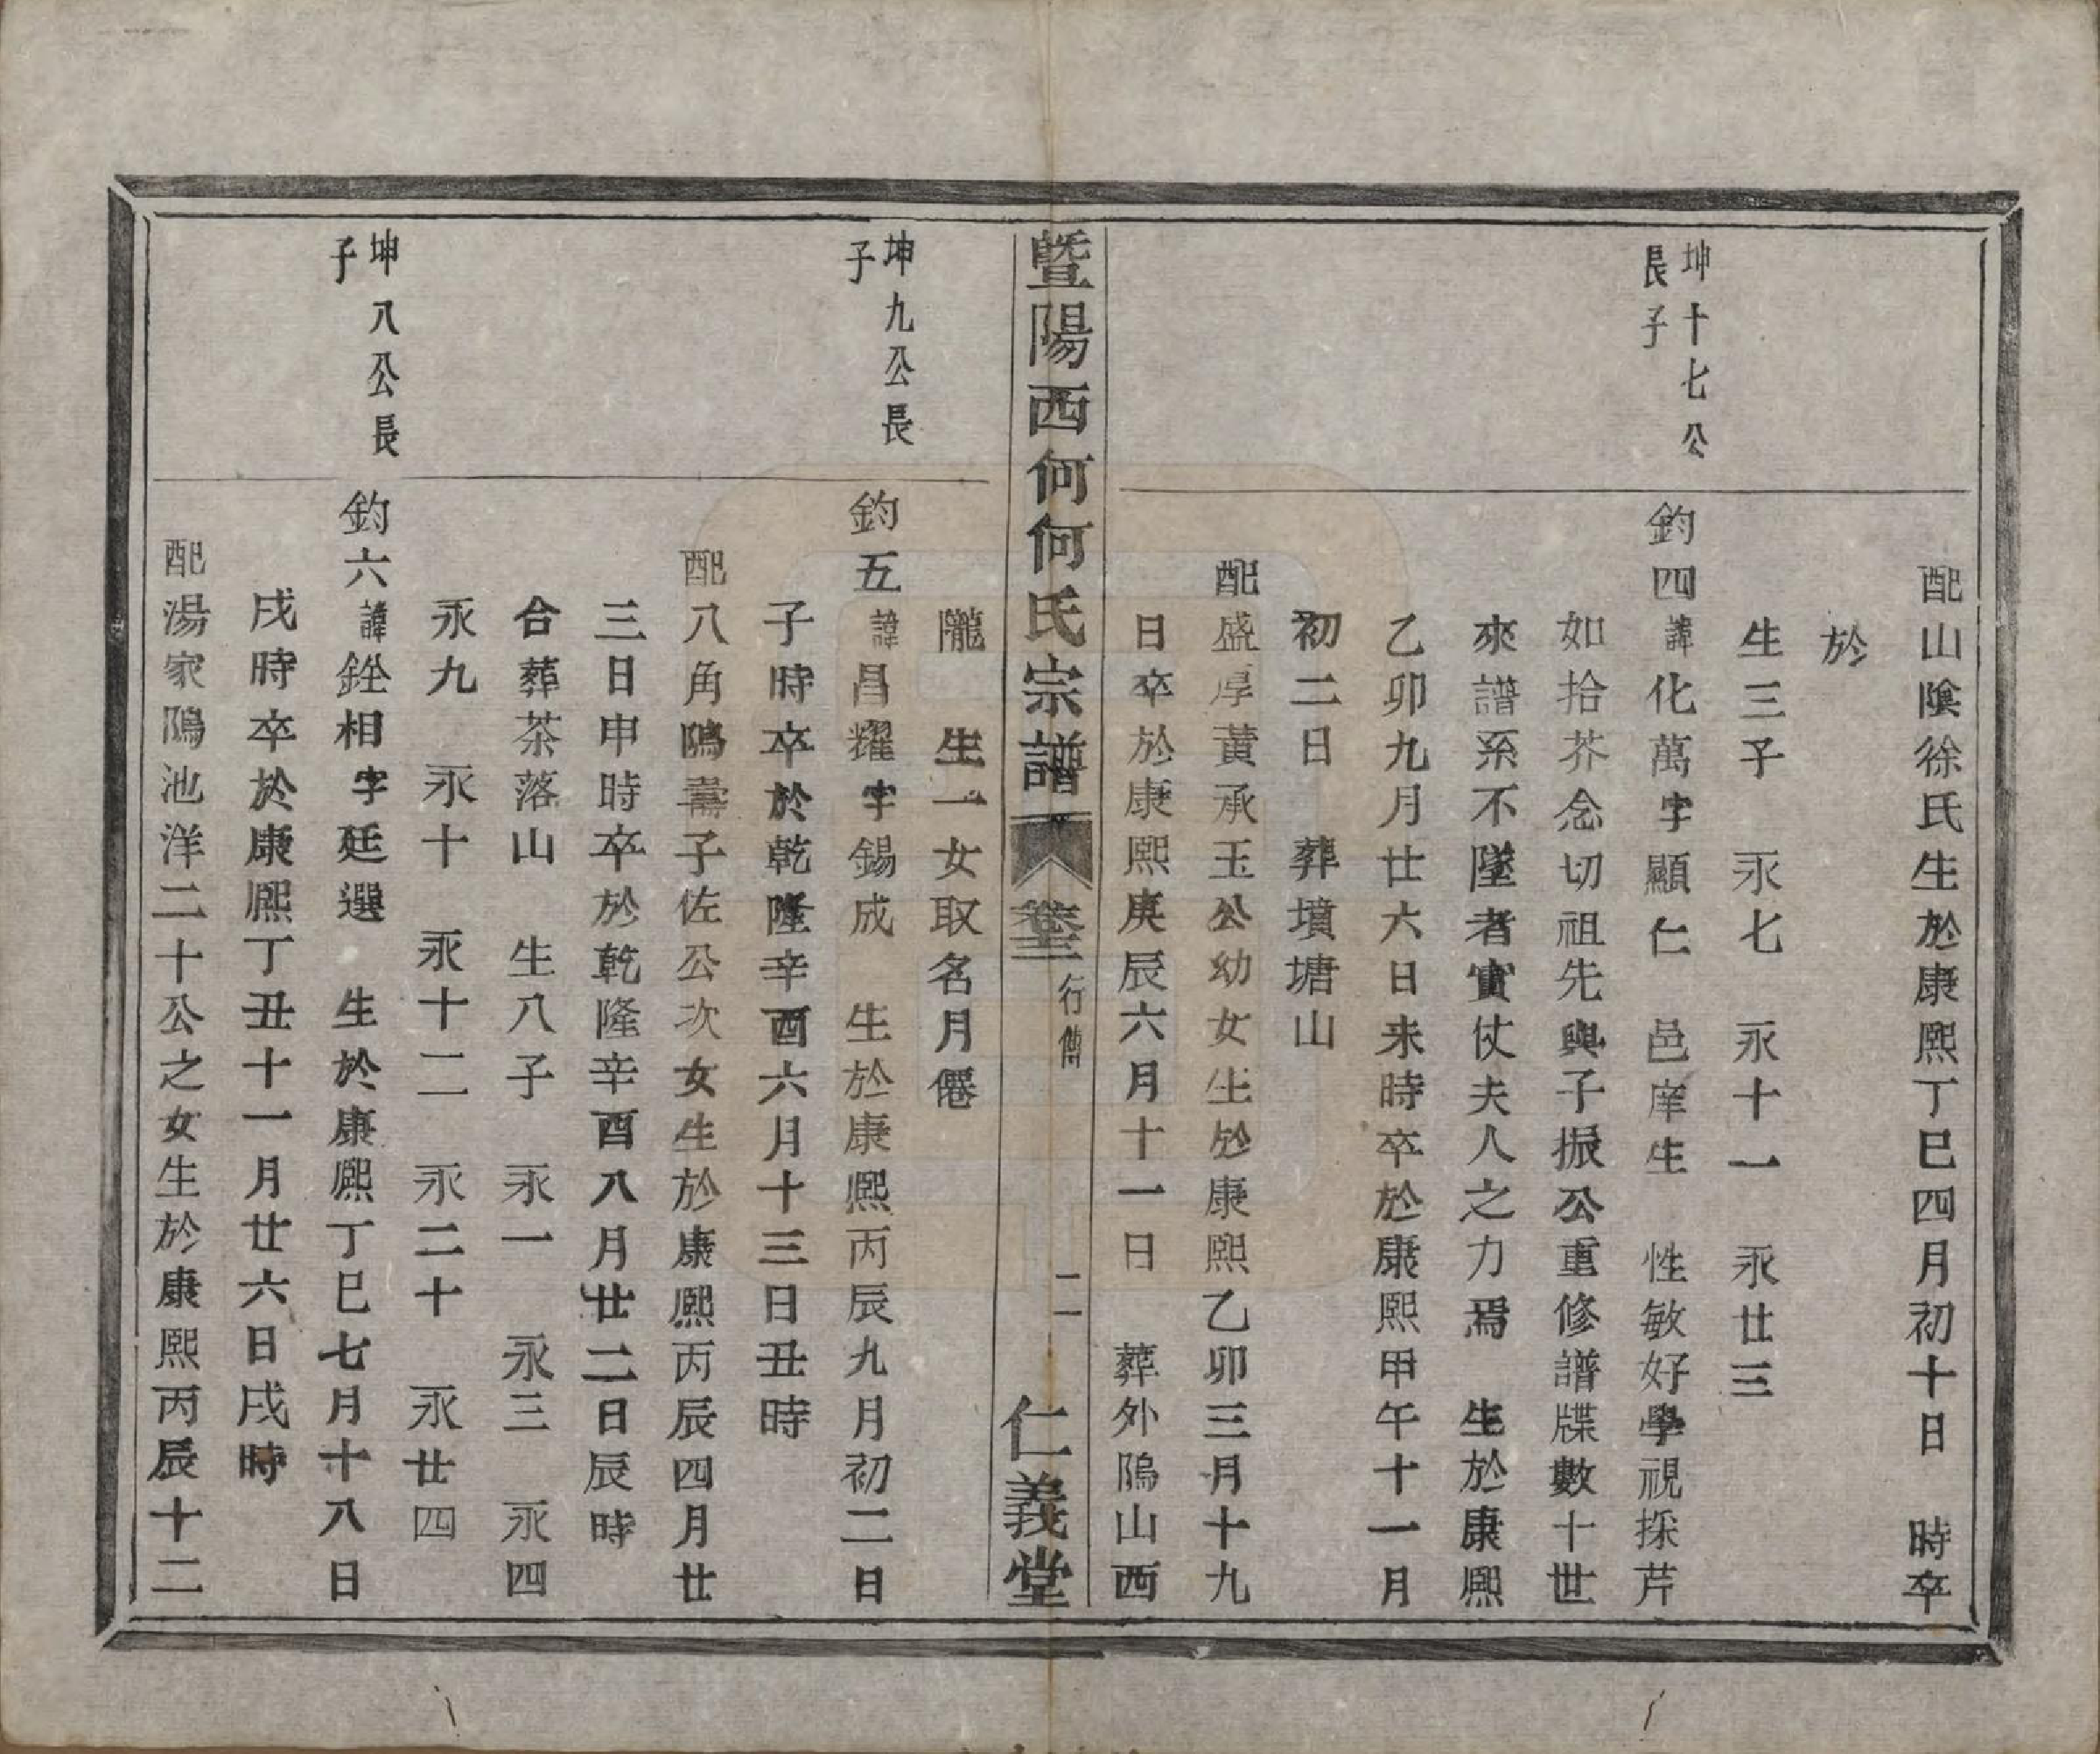 配山陰徐氏生於康熙丁巳四月初十日 時卒
於
生三子 永七 永十一 永廿三
坤十七公
長子
鈞四諱化萬字顯仁 邑庠生 性敏好學視採芹
如拾芥念切祖先與子振公重修譜牒數十世
來譜系不墜者實仗夫人之力焉 生於康熙
乙卯九月廿六日未時卒於康熙甲午十一月
初二日 葬墳塘山
配盛厚黃承玉公幼女生於康熙乙卯三月十九
日卒於康熙庚辰六月十一日 葬外隖山西
暨陽西何何氏宗譜 卷三 行傳 二 仁義堂
隴 生一女取名月僊
坤九公長
子
鈞五諱昌耀字錫成 生於康熙丙辰九月初二日
子時卒於乾隆辛酉六月十三日丑時
配八角隖壽子佐公次女生於康熙丙辰四月廿
三日申時卒於乾隆辛酉八月廿二日辰時
合葬茶落山 生八子 永一 永三 永四
永九 永十 永十二 永二十 永廿四
坤八公長
子
鈞六諱銓相字廷選 生於康熙丁巳七月十八日
戌時卒於康熙丁丑十一月廿六日戌時
配湯家隖池洋二十公之女生於康熙丙辰十二